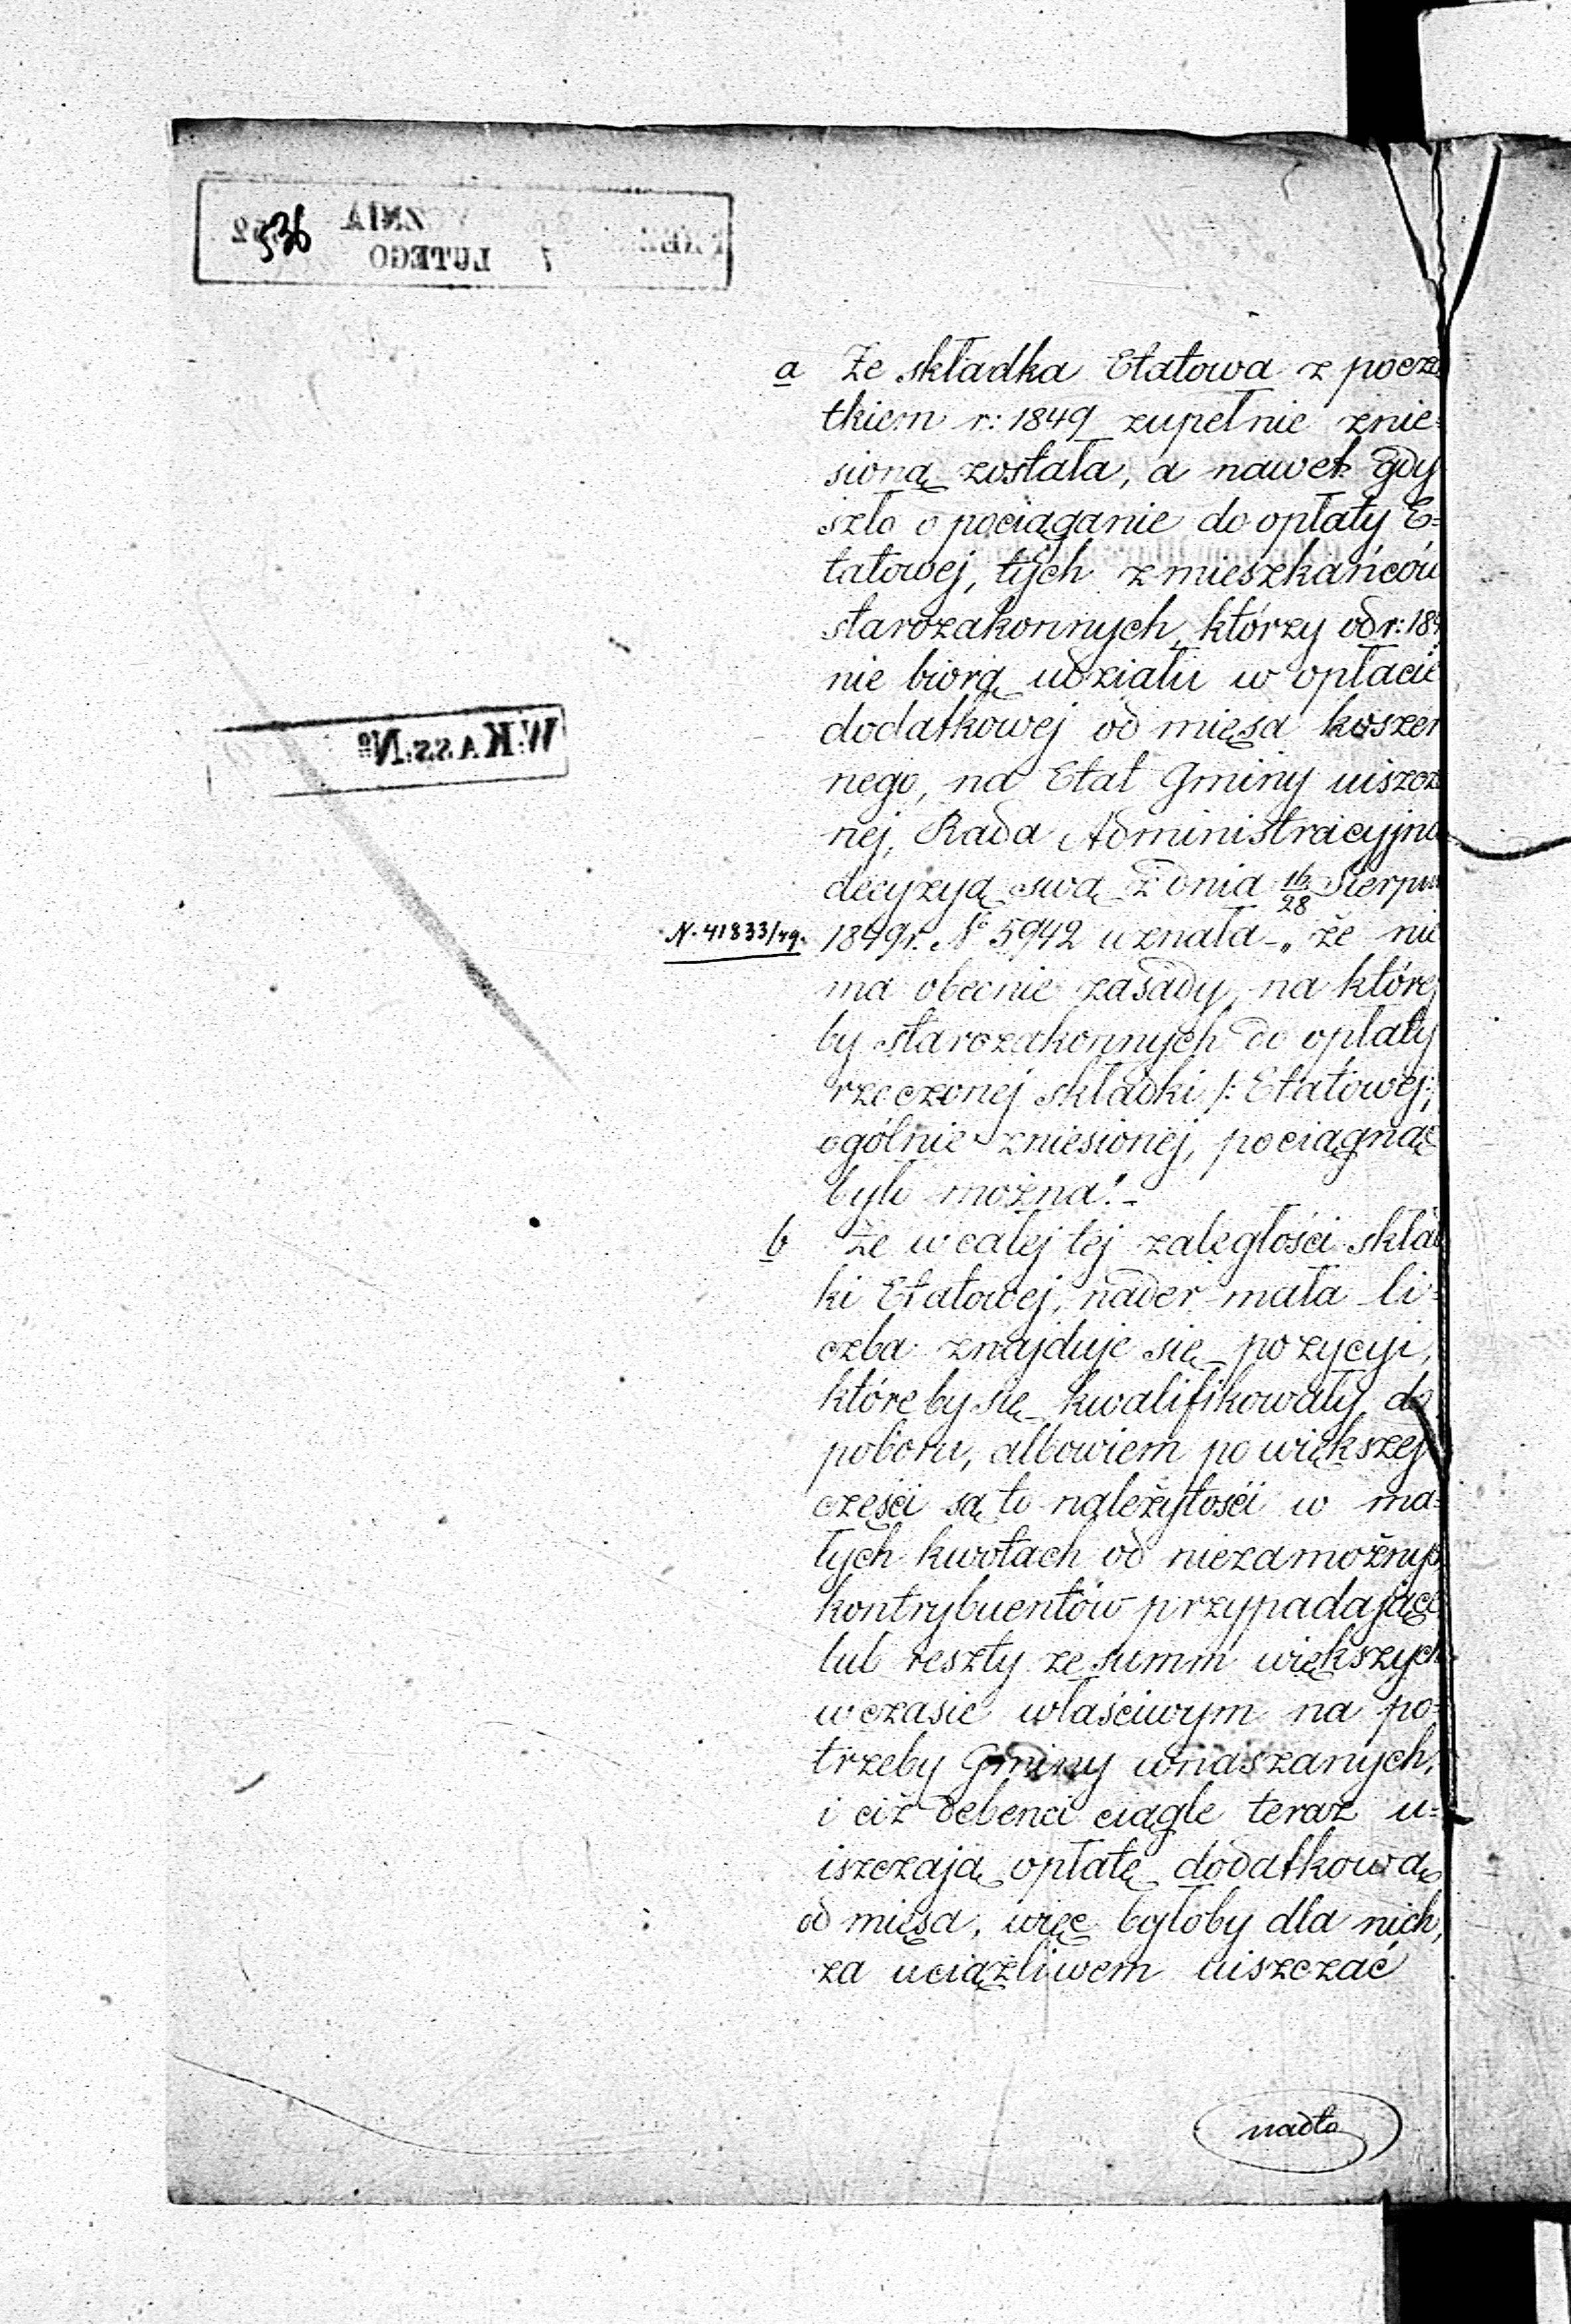 536
ZNIA
LUTEGO 7
W:KASS:Nº
a Że składka Etatowa z począ
tkiem r: 1849 zupełnie znie=
sioną została, a nawet gdy
szło o pociąganie do opłaty E=
tatowej, tych z mieszkańców
starozakonnych, którzy od r: 184
nie biorą udziału w opłacie
dodatkowej od mięsa koszer
nego, na Etat Gminy uiszcz
nej, Rada Administracyjna
decyzyą swą z dnia 16/28 Sierpnia
N. 41833/49. 1849 r. Nº 5942 uznała - „że nie
ma obecnie zasady, na której
by starozakonnych do opłaty
rzeczonej składki /: Etatowej:/
ogólnie zniesionej, pociągnąć
było można". -
b Że w całej tej zaległości skład
ki Etatowej, nader mała li=
czba znajduje się pozycyi,
które by się kwalifikowały do
poboru, albowiem po większej
części są to należytości w ma=
łych kwotach od niezamożnych
kontrybuentów przypadające
lub reszty ze summ większych
w czasie właściwym na po=
trzeby Gminy wnaszanych,
i ciż debenci ciągle teraz u=
iszczają opłatę dodatkową
od mięsa, więc byłoby dla nich,
za uciążliwem uiszczać
nadto